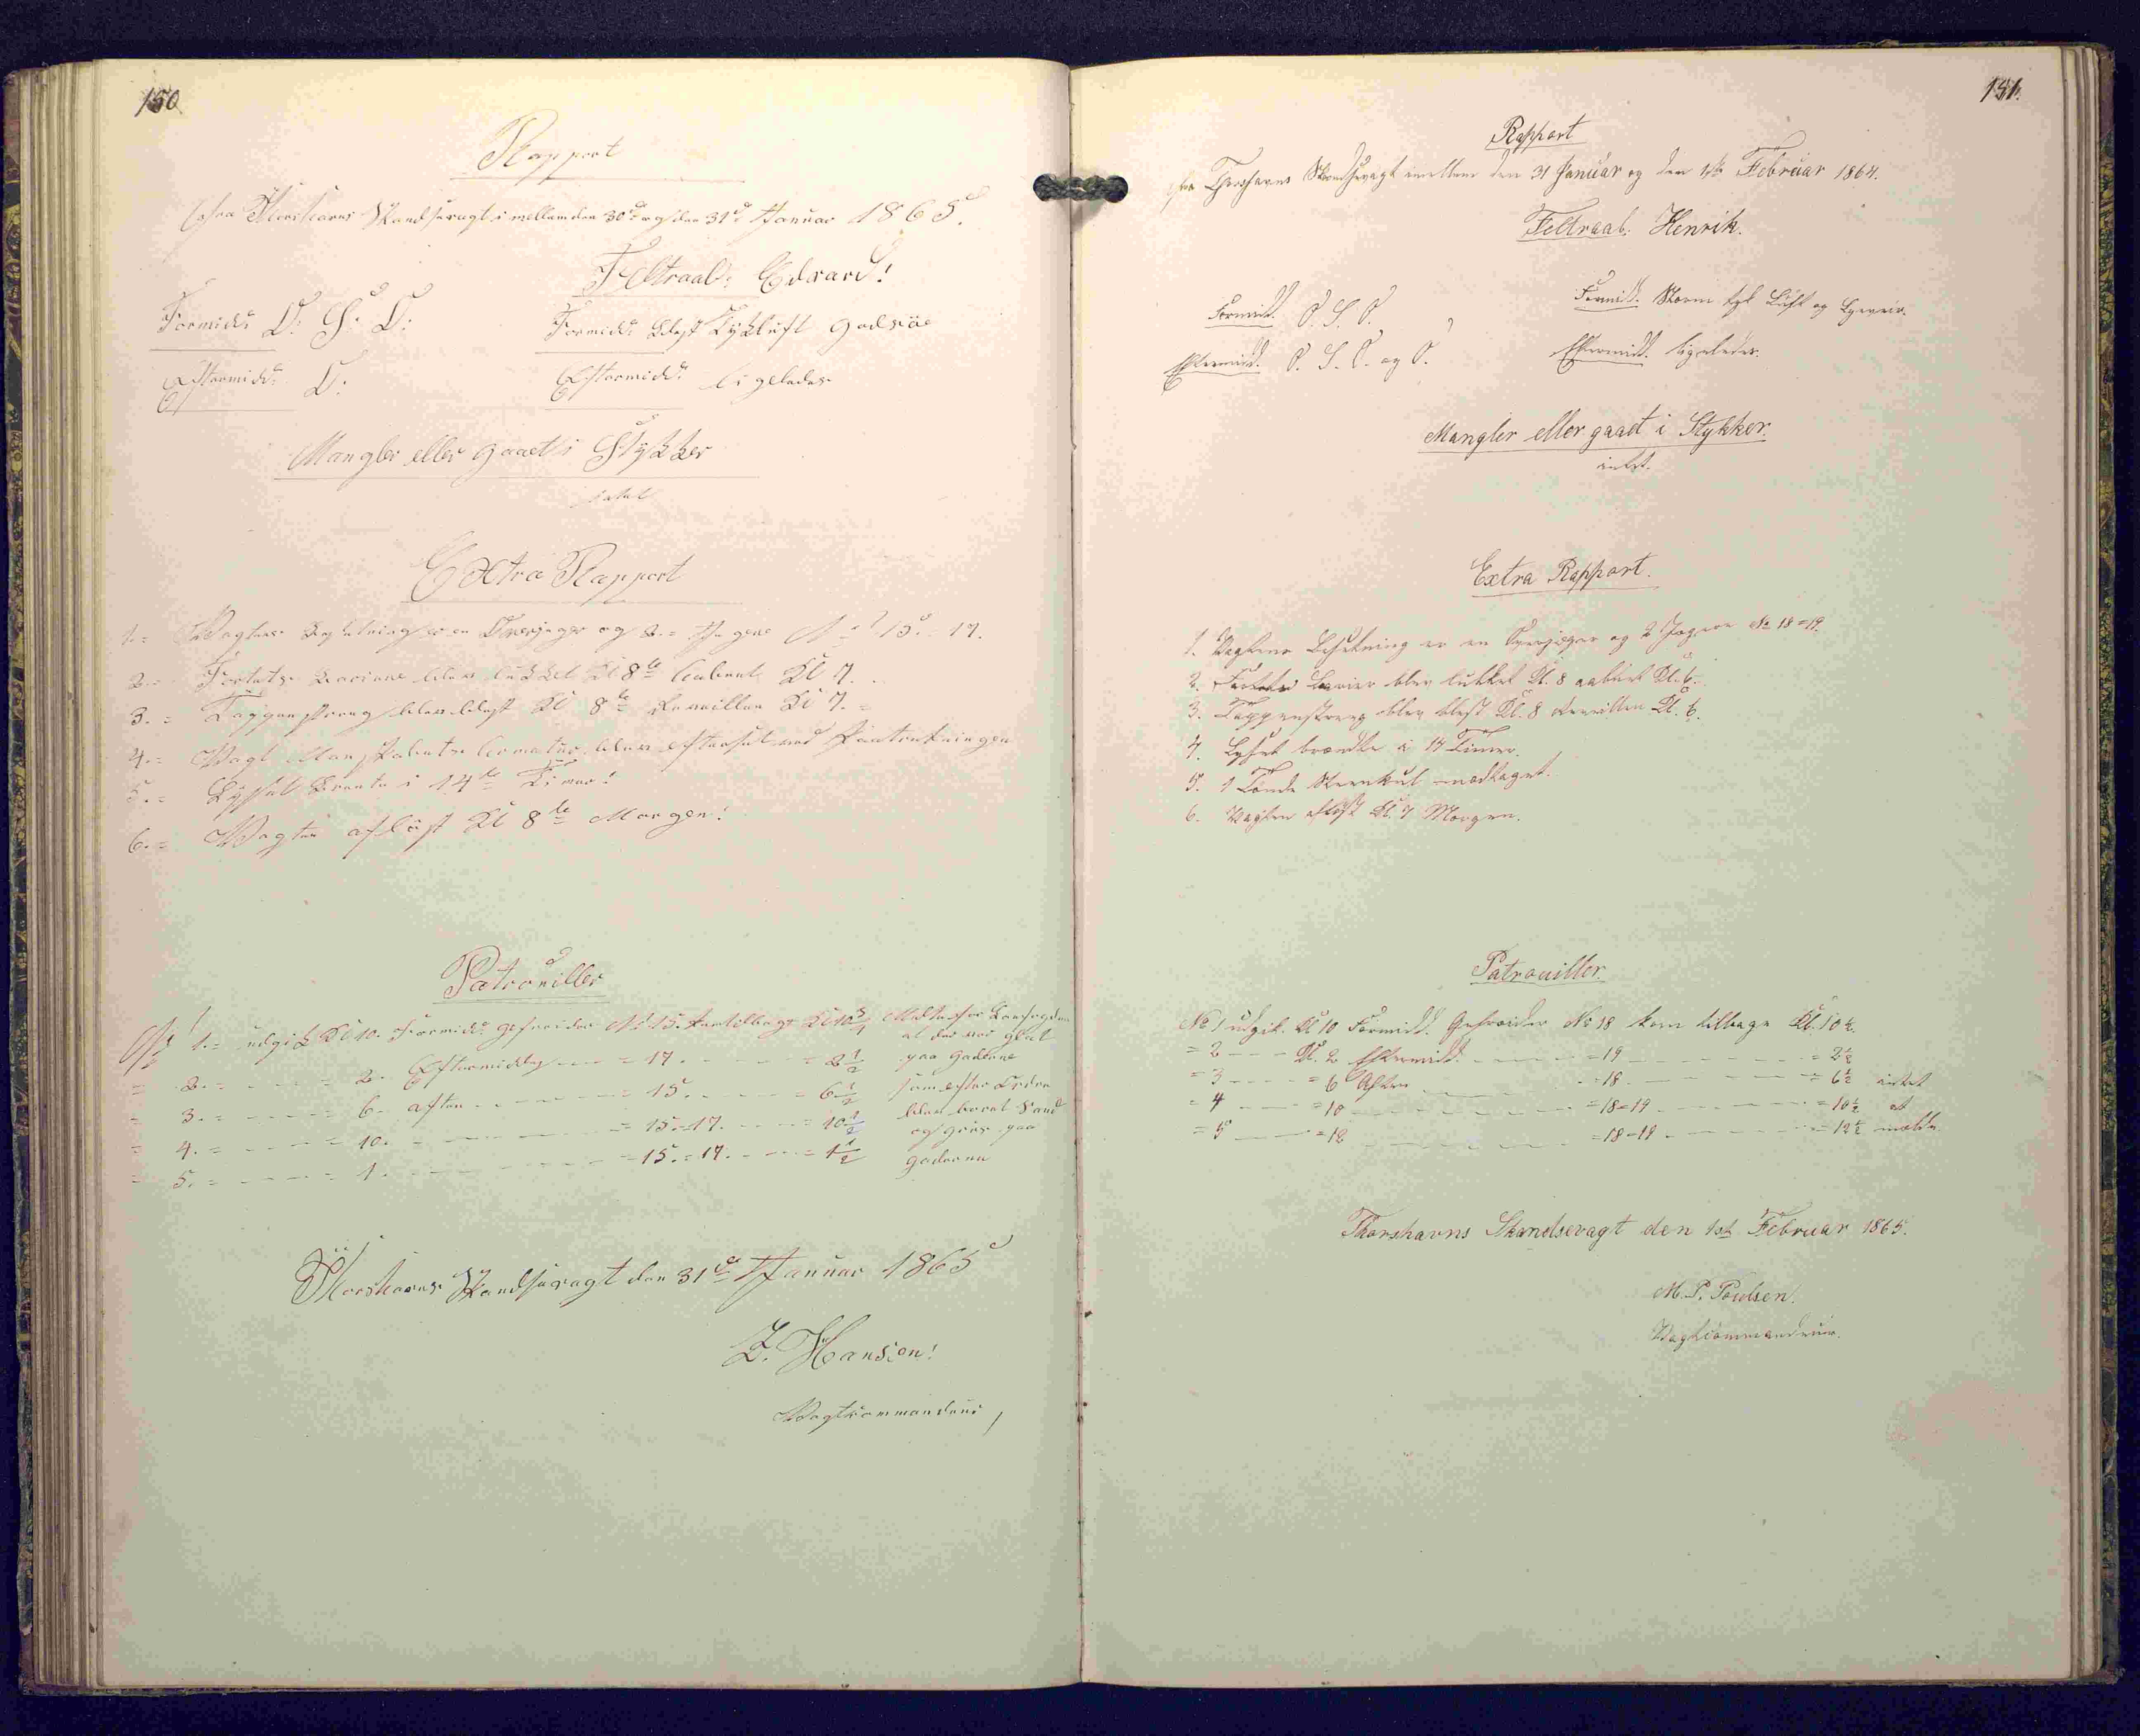 150.
Rapport
fra Thorshavns Skandsevagt i mellem den 30te og den 31te Januar 1865.
Feltraab: Edvard!
Formidd: O: S: O:
Formidd: blæst Tykluft
Eftermidd: O:
Eftermidd: ligeledes
Mangler eller gaaet i Stykker
intet
Extra Rapport
1. Vagtens Besætning er en Overjæger og 2 Jægere No 15 = 17.
2. Fortets Bariere blev lukket Kl 8te aabent Kl 7.
3. Tappenstreng blev blæst Kl 8te Reveillen Kl 7.
4. Vagt Mandskabets Armatur blev efterset ved
5. Lyset brente i 14te Timer!
6. Vagten afløst Kl 8te Morgen!
Patrouiller
No 1. udgik Kl 10. Formidd: gefreider No 15. kom tilbage Kl 10½ Meldes for
at der var glat
= 2. = 2. Eftermiddag = 17. = 2½ paa Gaderne
= 3. = 6. aften = 15. = 6½ som efter Ordre
blev baaret Sand
= 4. = 10. = 15. = 17. = 10½ og Grus paa
= 5. = 1. = 15. = 17. = 1½ Gaderne
Thorshavns Skandsevagt den 31te Januar 1865
Z. Hansen!
Vagtkommandeur
151.
Rapport
fra Thorshavns Skandsevagt imellem den 31 Januar og den 1ste Februar 1864.
Feltraab: Henrik.
Formidd. O. S. O.
Formidd. Storm tyk Luft og
Eftermidd. O. S. O. og O.
Eftermidd. ligeledes.
Mangler eller gaaet i Stykker.
intet.
Extra Rapport.
1. Vagtens Besetning er en Overjæger og 2 Jægere No 18 = 19.
2. Fortets Barier blev lukket Kl. 8 aabnet Kl. 6.
3. Tappenstreng blev blæst Kl. 8 Reveillen Kl. 6.
4. Lyset brændte i 14 Timer.
5. 1 Tønde Steenkul modtaget.
6. Vagten afløst Kl. 7 Morgen.
Patrouiller
No 1 udgik Kl 10 Formidd. Gefreider No 18 kom tilbage Kl. 10½.
= 2 Kl. 2 Eftermidd. = 19 = 2½
= 3 = 6 Aften = 18 = 6½ intet
= 4 = 10 = 18 = 19 = 10½ at
= 5 = 12 = 18 = 19 = 12½ melde
Thorshavns Skandsevagt den 1ste Februar 1865.
M. P. Poulsen.
Vagtcommandeur.